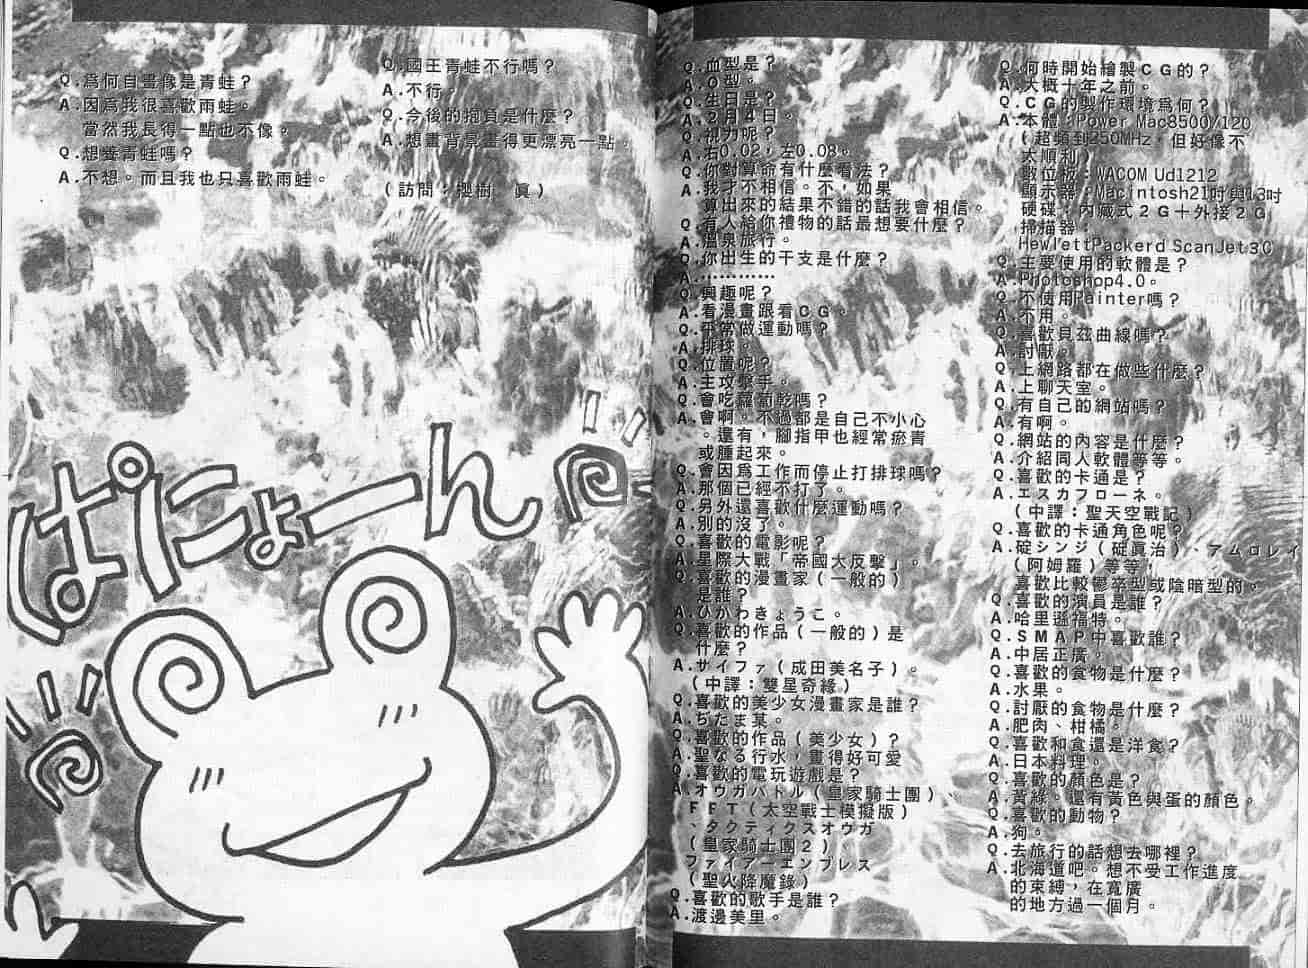 Q.血型是？
A.O型。
Q.生日是？
A.2月4日。
Q.視力呢？
A.右0.02，左0.08。
Q.你對算命有什麼看法？
A.我才不相信。不，如果
算出來的結果不錯的話我會相信。
Q.有人給你禮物的話最想要什麼？
A.溫泉旅行。
Q.你出生的干支是什麼？
A.…………
Q.興趣呢？
A.看漫畫跟看CG。
Q.平常做運動嗎？
A.排球。
Q.位置呢？
A.主攻擊手。
Q.會吃蘿蔔乾嗎？
A.會啊。不過都是自己不小心
。還有，腳指甲也經常瘀青
或腫起來。
Q.會因爲工作而停止打排球嗎？
A.那個已經不打了。
Q.另外還喜歡什麼運動嗎？
A.別的沒了。
Q.喜歡的電影呢？
A.星際大戰「帝國大反擊」。
Q.喜歡的漫畫家（一般的）
是誰？
A.ひかわきょうこ。
Q.喜歡的作品（一般的）是
什麼？
A.サイファ（成田美名子）。
（中譯：雙星奇緣）
Q.喜歡的美少女漫畫家是誰？
A.ぢたま某。
Q.喜歡的作品（美少女）？
A.聖なる行水，畫得好可愛
Q.喜歡的電玩遊戲是？
A.オウガバトル（皇家騎士團）、
FFT（太空戰士模擬版）
、タクティクスオウガ
（皇家騎士團2）、
ファイアーエンブレス
（聖火降魔錄）
Q.喜歡的歌手是誰？
A.渡邊美里。
Q.何時開始繪製CG的？
A.大概十年之前。
Q.CG的製作環境爲何？
A.本體：Power Mac8500/120
（超頻到250MHz，但好像不
太順利）
數位板：WACOM Ud1212
顯示器：Macintosh21吋與13吋
硬碟：內藏式2G＋外接2G
掃描器：
HewlettPackerd ScanJet3C
Q.主要使用的軟體是？
A.Photoshop4.0。
Q.不使用Painter嗎？
A.不用。
Q.喜歡貝茲曲線嗎？
A.討厭。
Q.上網路都在做些什麼？
A.上聊天室。
Q.有自己的網站嗎？
A.有啊。
Q.網站的內容是什麼？
A.介紹同人軟體等等。
Q.喜歡的卡通是？
A.エスカフローネ。
（中譯：聖天空戰記）
Q.喜歡的卡通角色呢？
A.碇シンジ（碇眞治）、アムロレイ
（阿姆羅）等等，
喜歡比較鬱卒型或陰暗型的。
Q.喜歡的演員是誰？
A.哈里遜福特。
Q.SMAP中喜歡誰？
A.中居正廣。
Q.喜歡的食物是什麼？
A.水果。
Q.討厭的食物是什麼？
A.肥肉、柑橘。
Q.喜歡和食還是洋食？
A.日本料理。
Q.喜歡的顏色是？
A.黃綠。還有黃色與蛋的顏色。
Q.喜歡的動物？
A.狗。
Q.去旅行的話想去哪裡？
A.北海道吧。想不受工作進度
的束縛，在寬廣
的地方過一個月。
Q.爲何自畫像是青蛙？
A.因爲我很喜歡雨蛙。
當然我長得一點也不像。
Q.想養青蛙嗎？
A.不想。而且我也只喜歡雨蛙。
Q.國王青蛙不行嗎？
A.不行。
Q.今後的抱負是什麼？
A.想畫背景畫得更漂亮一點。
（訪問：櫻樹　眞）
ぱにょーん